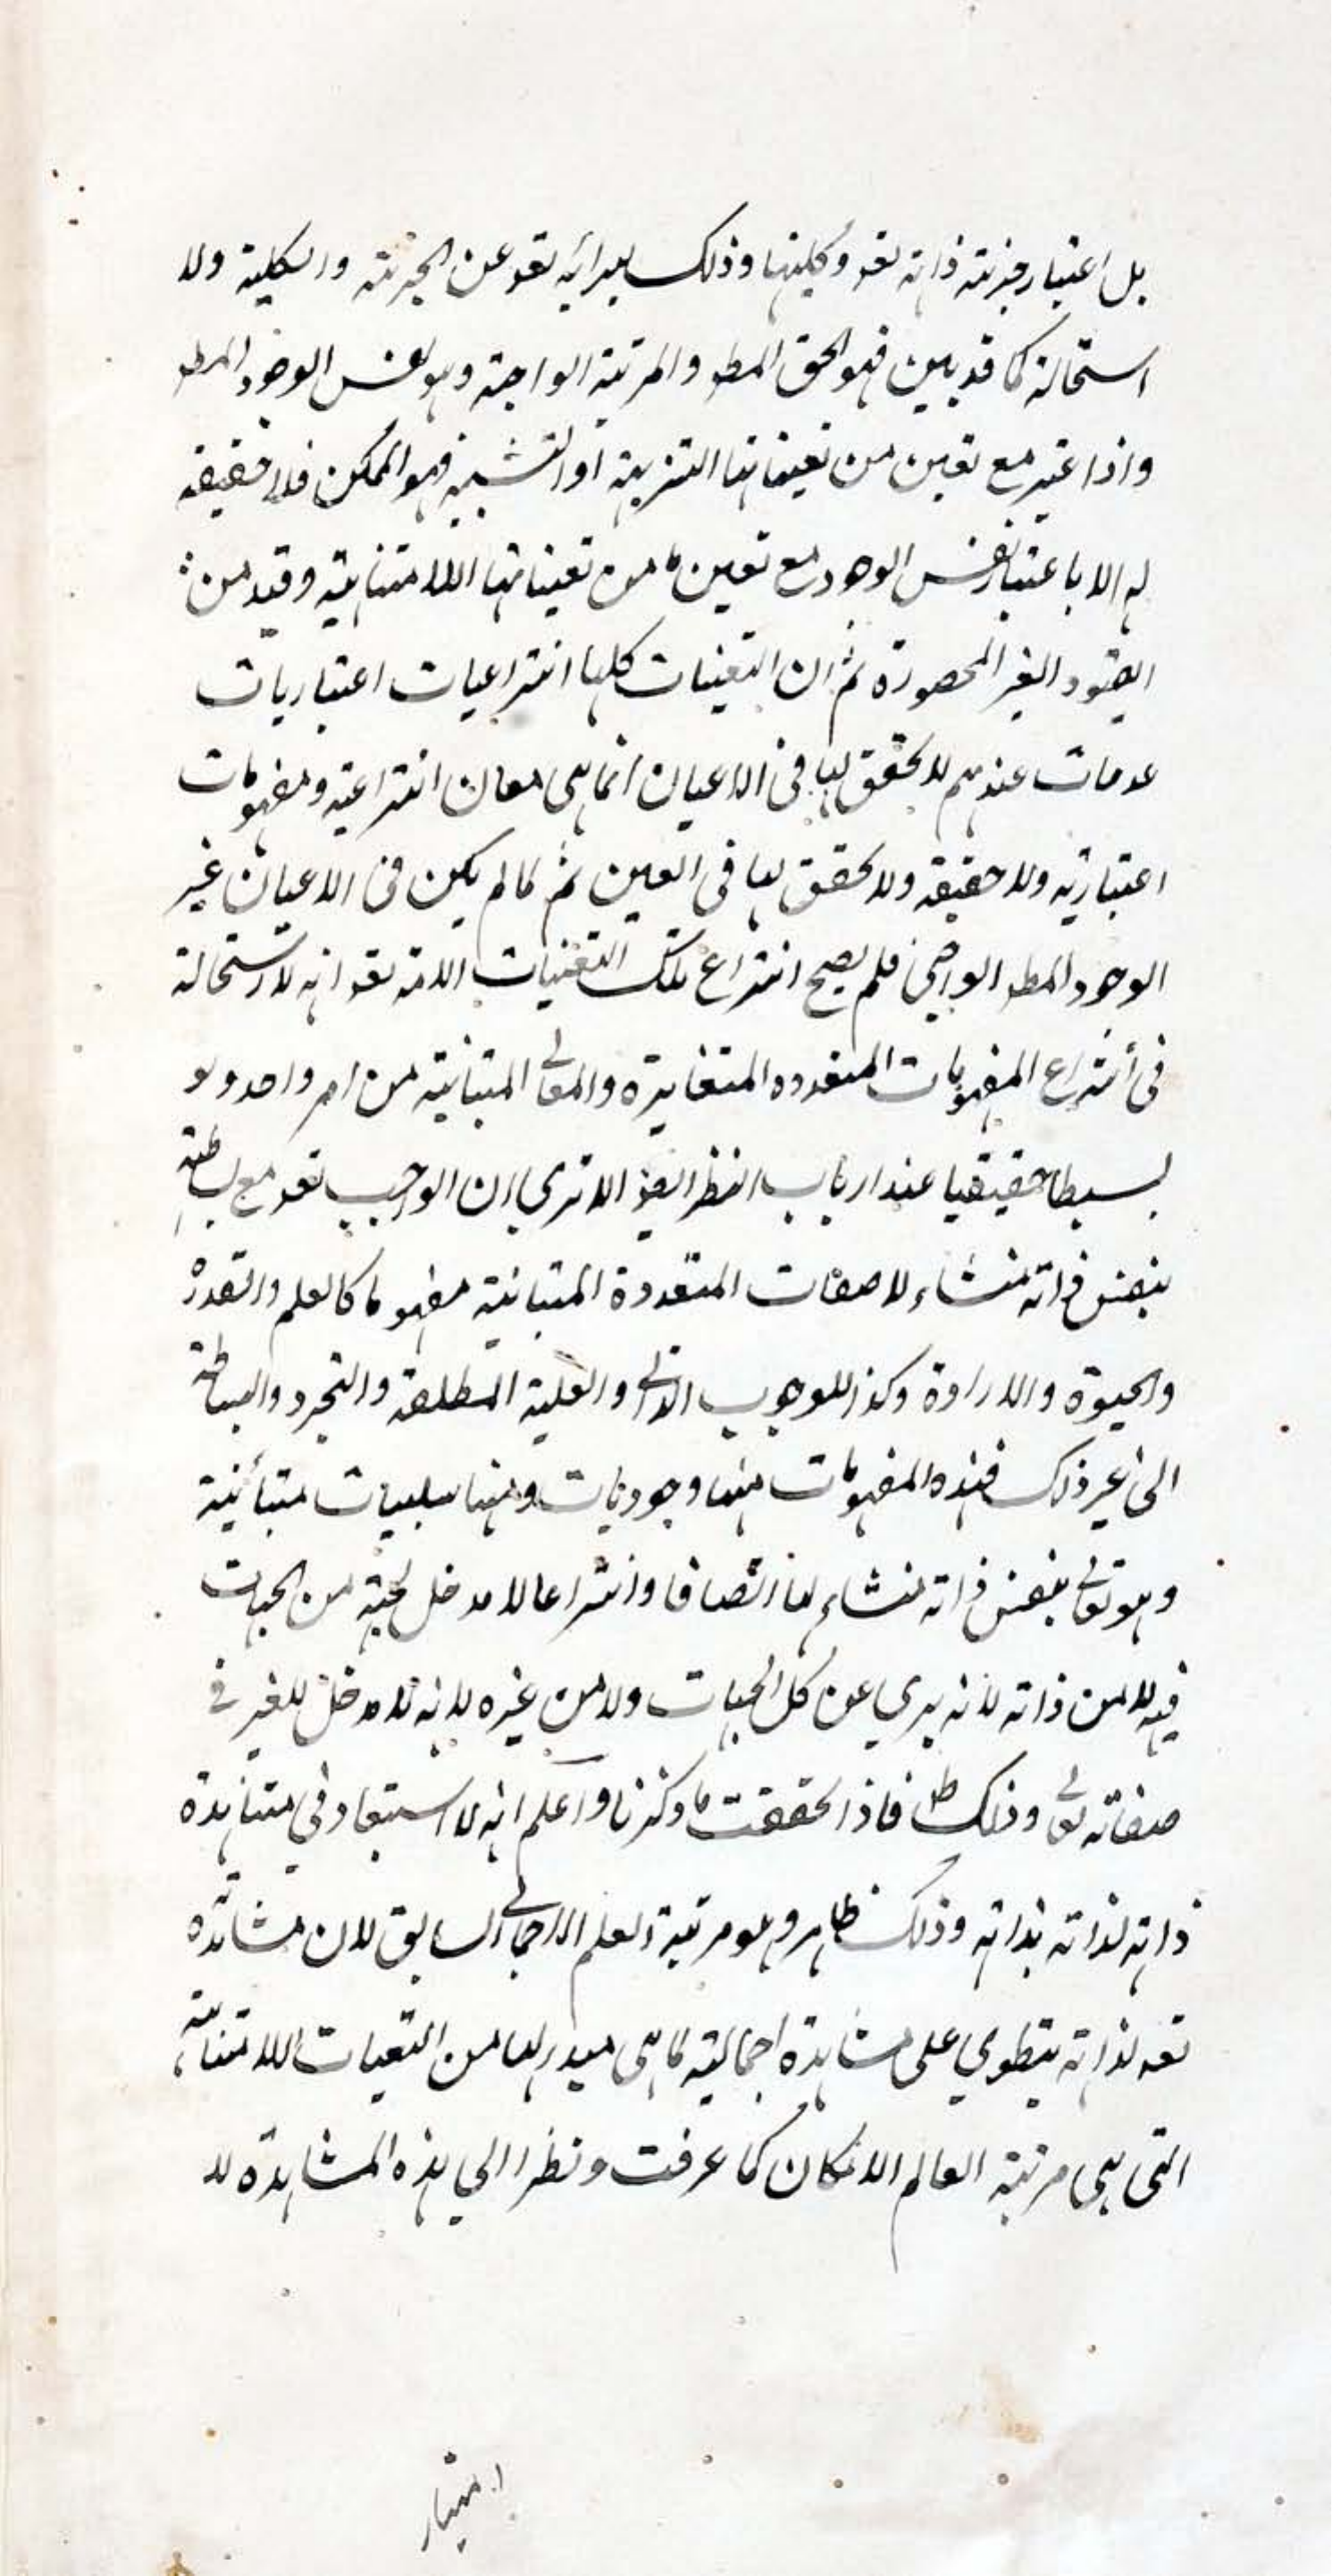 بل اعتبار جزئية ذاته تعو وكليتها وذلك لبرائه تعو عن الجزئية والكلية ولا
استحالة كما قد بين فهو الحق المط والمرتبة الواجبة وهو نفس الوجود المط
واذا اعتبر مع تعين من تعيناتها التنزيهية او التشبيهية فهو الممكن فلا حقيقة
له الا باعتبار نفس الوجود مع تعين ما من تعيناتها اللامتناهية وقيد من
القيود الغير المحصورة ثم ان التعينات كلها انتزاعيات اعتباريات
عدمات عندهم لا تحقق لها في الاعيان انما هي معان انتزاعية ومفهومات
اعتبارية ولا حقيقة ولا تحقق لها في العين ثم لما لم يكن في الاعيان غير
الوجود المط الواجبي فلم يصح انتزاع تلك التعينات الا منه تعو انه لا استحالة
في أنتزاع المفهومات المتعدده المتغايرة والمعاني المتبائنة من امر واحد ولو
بسيطا حقيقيا عند ارباب النظر ايضا الا تري ان الواجب تعو مع بساطته
بنفس ذاته منشاء لاصفات المتعددة المتبائنة مفهوما كالعلم والقدرة
والحيوة والارادة وكذا للوجوب الذاتي والعلية المطلقة والتجرد والبساطة
الى غير ذلك فهذه المفهومات منها وجوديات ومنها سلبيات متبأئنة
وهو تعالي بنفس ذاته منشاء لها اتصافا وانتزاعا لا مدخل لجهة من الجهات
فيه لا من ذاته لانه بري عن كل الجهات ولا من غيره لانه لا مدخل للغير في
صفاته تعالي وذلك ظ فاذا تحققت ما ذكرنا واعلم انه لا استبعاد في مشاهدة
ذاته لذاته بذاته وذلك ظاهر وهو مرتبة العلم الاجمالي السابق لان مشاهدته
تعه لذاته ينطوي على مشاهدة اجمالية لما هي مبدء لها من التعينات اللامتناهية
التي هي مرتبة العالم الامكان كما عرفت ونظرا الي هذه المشاهدة لا
امتياز